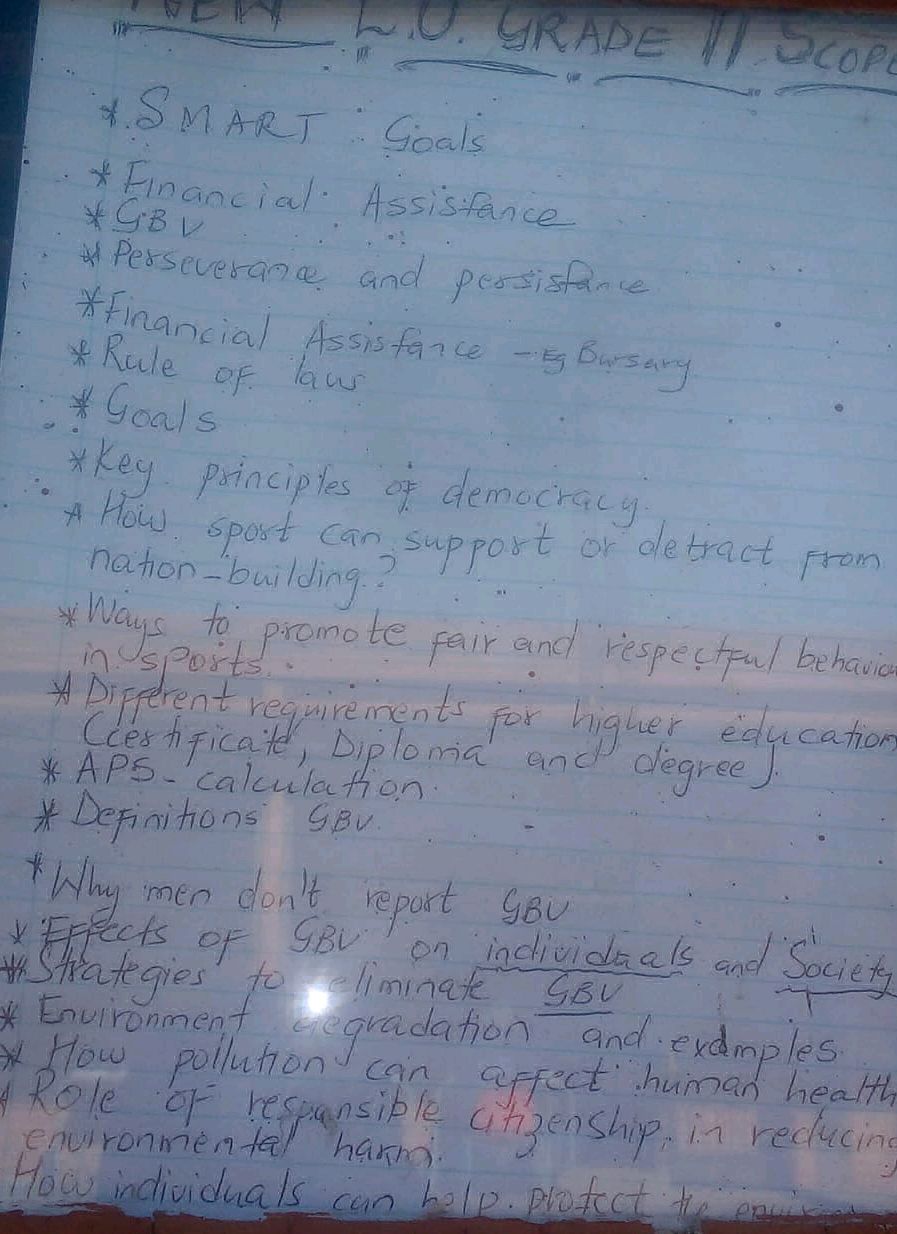 NEW L.O. GRADE 11 SCOPE
* SMART Goals
* Financial Assistance
* GBV
* Perseverance and persistance
* Financial Assistance - Eg Bursary
* Rule of law
* Goals
* Key principles of democracy.
* How sport can support or detract from
nation-building?
* Ways to promote fair and respectful behaviou
in sports.
* Different requirements for higher education
(certificate, Diploma and degree).
* APS - calculation.
* Definitions GBV
* Why men don't report GBV
* Effects of GBV on individuals and Society
* Strategies to eliminate GBV
* Environment degradation and examples.
* How pollution can affect human health
* Role of responsible citizenship, in reducing
environmental harm.
How individuals can help protect the